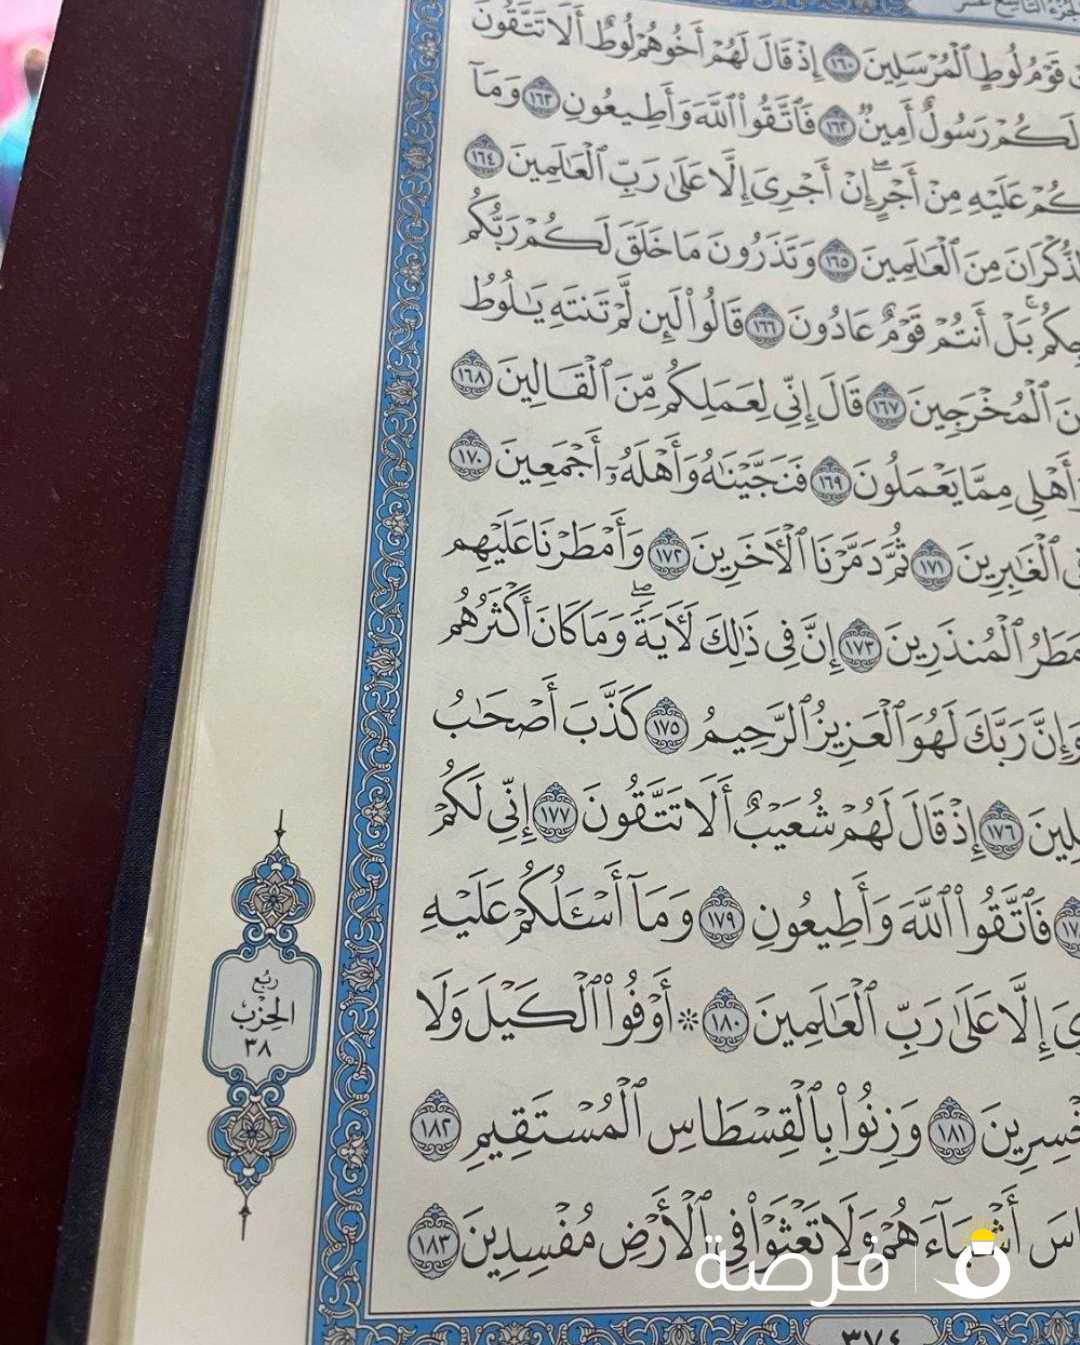 الجزء التاسع عشر
قَوْمُ لُوطٍ ٱلْمُرْسَلِينَ ١٦٠ إِذْ قَالَ لَهُمْ أَخُوهُمْ لُوطٌ أَلَا تَتَّقُونَ
لَكُمْ رَسُولٌ أَمِينٌ ١٦٢ فَٱتَّقُوا۟ ٱللَّهَ وَأَطِيعُونِ ١٦٣ وَمَآ
عَلَيْهِ مِنْ أَجْرٍ ۖ إِنْ أَجْرِىَ إِلَّا عَلَىٰ رَبِّ ٱلْعَـٰلَمِينَ ١٦٤
مِنَ ٱلْعَـٰلَمِينَ ١٦٥ وَتَذَرُونَ مَا خَلَقَ لَكُمْ رَبُّكُم
بَلْ أَنتُمْ قَوْمٌ عَادُونَ ١٦٦ قَالُوا۟ لَئِن لَّمْ تَنتَهِ يَـٰلُوطُ
ٱلْمُخْرَجِينَ ١٦٧ قَالَ إِنِّى لِعَمَلِكُم مِّنَ ٱلْقَالِينَ ١٦٨
وَأَهْلِى مِمَّا يَعْمَلُونَ ١٦٩ فَنَجَّيْنَـٰهُ وَأَهْلَهُۥٓ أَجْمَعِينَ ١٧٠
ٱلْغَـٰبِرِينَ ١٧١ ثُمَّ دَمَّرْنَا ٱلْـَٔاخَرِينَ ١٧٢ وَأَمْطَرْنَا عَلَيْهِم
مَطَرُ ٱلْمُنذَرِينَ ١٧٣ إِنَّ فِى ذَٰلِكَ لَـَٔايَةً ۖ وَمَا كَانَ أَكْثَرُهُم
وَإِنَّ رَبَّكَ لَهُوَ ٱلْعَزِيزُ ٱلرَّحِيمُ ١٧٥ كَذَّبَ أَصْحَـٰبُ
١٧٦ إِذْ قَالَ لَهُمْ شُعَيْبٌ أَلَا تَتَّقُونَ ١٧٧ إِنِّى لَكُمْ
فَٱتَّقُوا۟ ٱللَّهَ وَأَطِيعُونِ ١٧٩ وَمَآ أَسْـَٔلُكُمْ عَلَيْهِ
إِلَّا عَلَىٰ رَبِّ ٱلْعَـٰلَمِينَ ١٨٠ ۞ أَوْفُوا۟ ٱلْكَيْلَ وَلَا
١٨١ وَزِنُوا۟ بِٱلْقِسْطَاسِ ٱلْمُسْتَقِيمِ ١٨٢
أَشْيَآءَهُمْ وَلَا تَعْثَوْا۟ فِى ٱلْأَرْضِ مُفْسِدِينَ ١٨٣
ربع
الحزب
٣٨
٣٧٤
فرصة